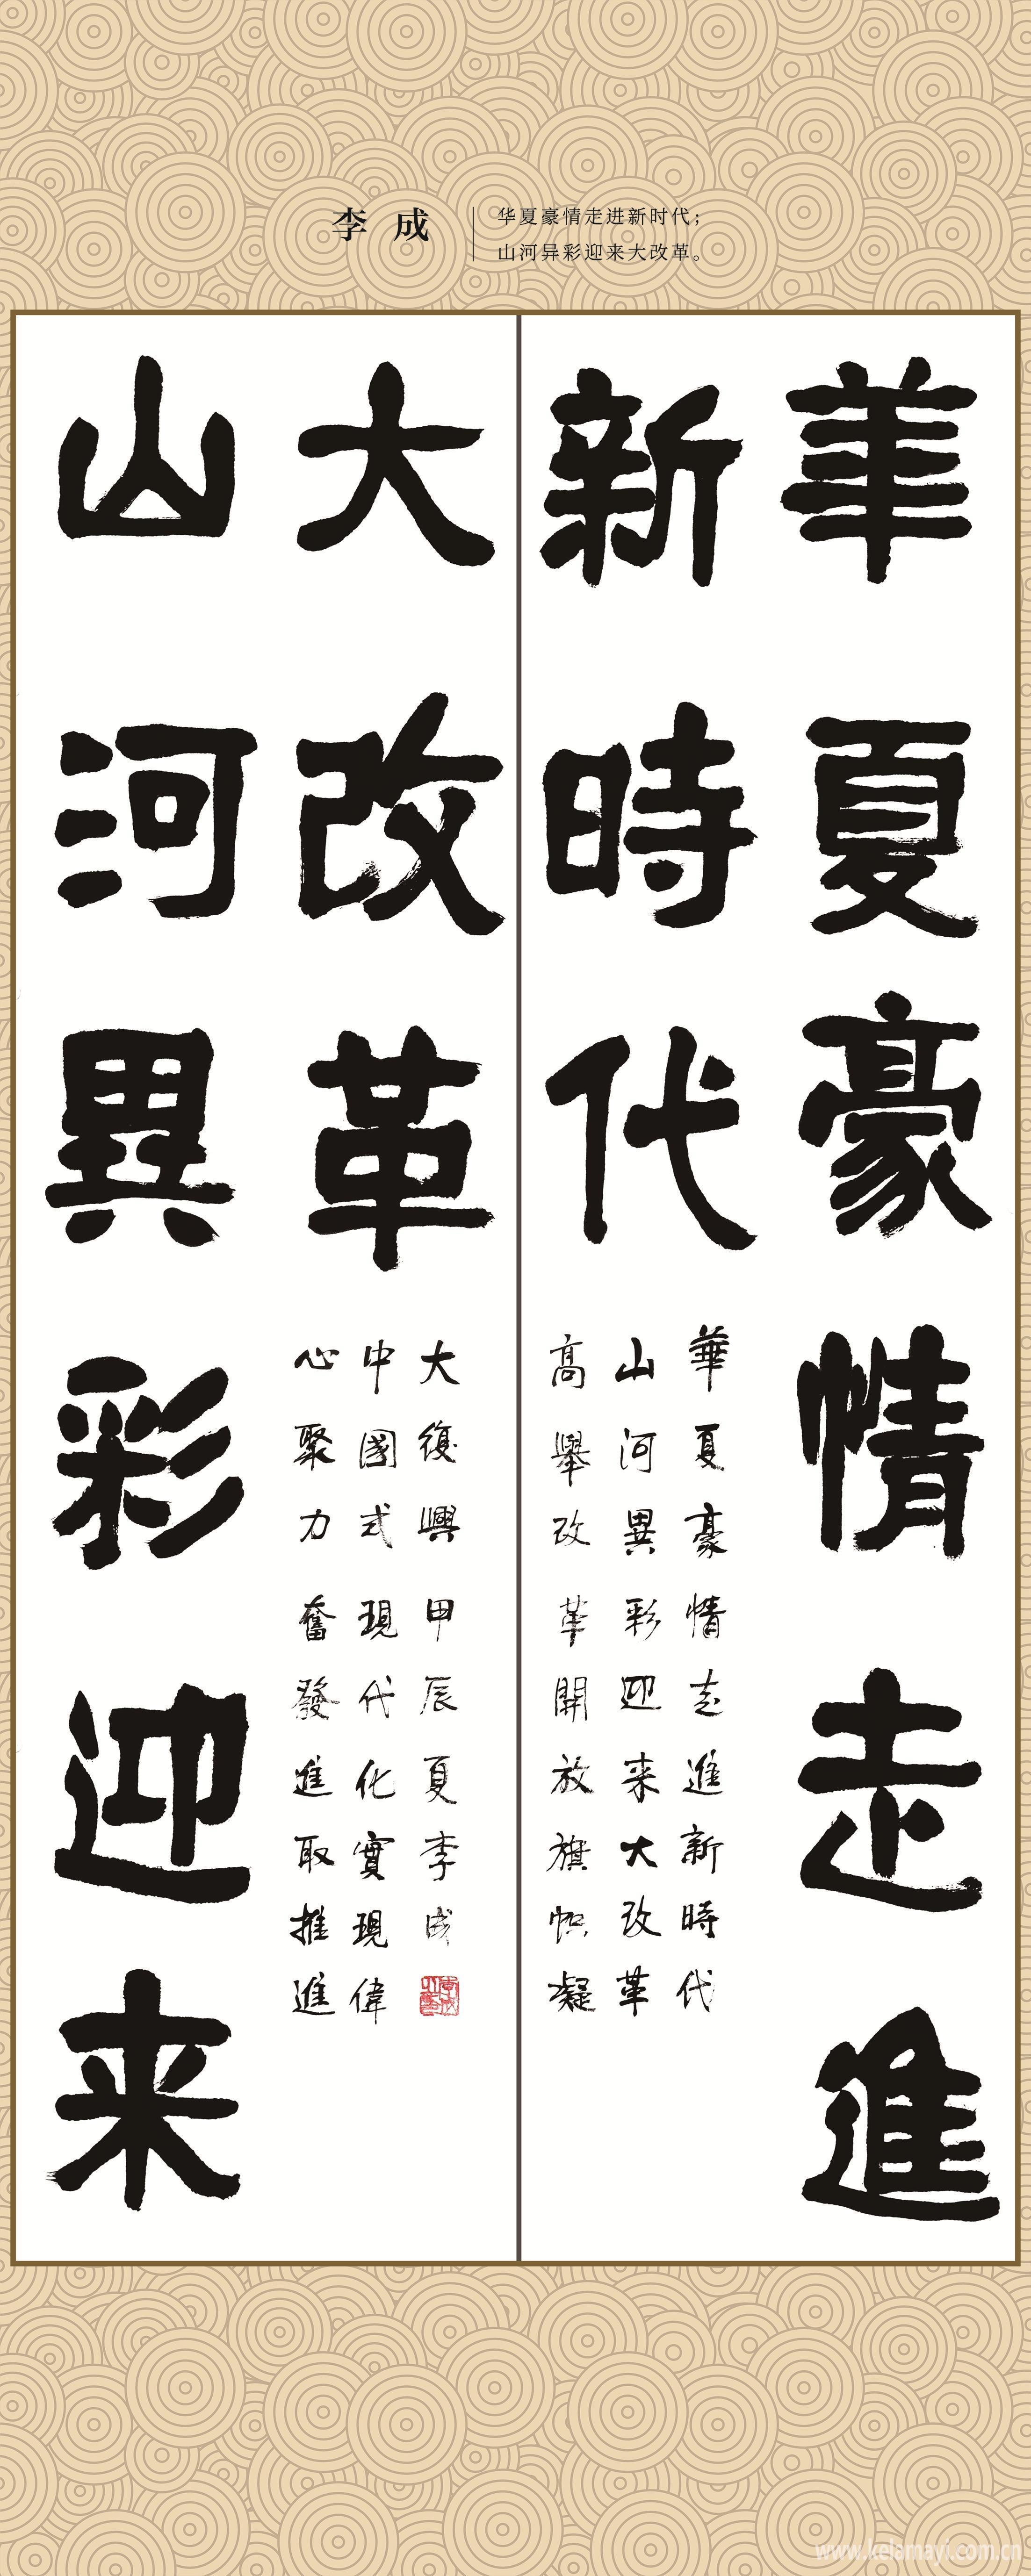 李 成
华夏豪情走进新时代；
山河异彩迎来大改革。
華夏豪情走進
新時代
華夏豪情走進新時代
山河異彩迎来大改革
高舉改革開放旗幟凝
山河異彩迎来
大改革
大復興甲辰夏李成
中國式現代化實現偉
心聚力奮發進取推進
www.kelamayi.com.cn